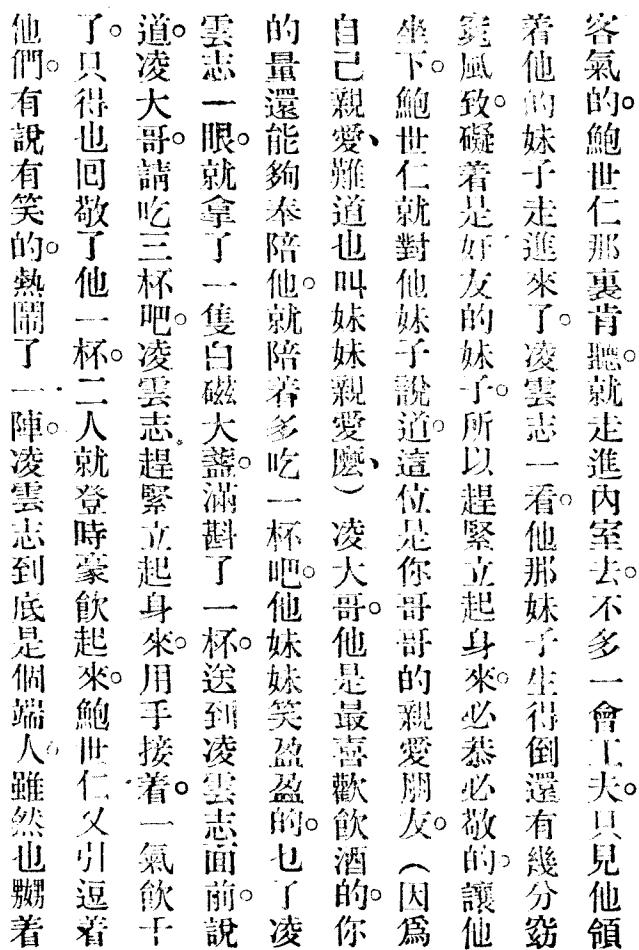 客氣的。鮑世仁那裏肯聽。就走進內室去。不多一會工夫。只見他領
着他的妹子走進來了。凌雲志一看。他那妹子生得倒還有幾分窈
窕風致。礙着是好友的妹子。所以趕緊立起身來。必恭必敬的。讓他
坐下。鮑世仁就對他妹子說道。這位是你哥哥的親愛朋友。（因爲
自己親愛、難道也叫妹妹親愛麼、）凌大哥。他是最喜歡飲酒的。你
的量還能夠奉陪他。就陪着多吃一杯吧。他妹妹笑盈盈的。乜了凌
雲志一眼。就拿了一隻白磁大盞。滿斟了一杯。送到凌雲志面前。說
道。凌大哥。請吃三杯吧。凌雲志。趕緊立起身來。用手接着。一氣飲干
了。只得也囘敬了他一杯。二人就登時豪飲起來。鮑世仁又引逗着
他們。有說有笑的。熱鬧了一陣。凌雲志到底是個端人。雖然也嬲着